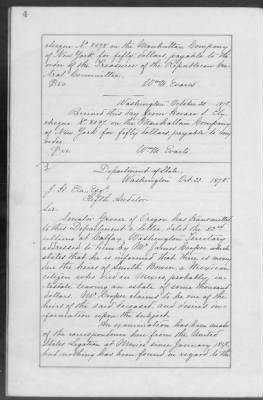 4
cheque No. 8098 on the Manhattan Company
of New York for fifty dollars, payable to the
order of the Treasurer of the Republican Cen-
tral Committee.
$50. Wm M. Evarts.
Washington October 23. 1878.
Received this day from Horace S. Ely
cheque No. 8095 on the Manhattan Company
of New York for fifty dollars payable to my
order.
$50. Wm M. Evarts
Department of State,
Washington Oct. 23. 1878.
J. H. Ela, Esqr
Fifth Auditor
Sir:
Senator Grover of Oregon has transmitted
to this Department a letter, dated the 23d
ultimo at Colfax, Washington Territory
addressed to him by Mr James Cooper which
states that he is informed that there is money
due the heirs of Bowen, a Mexican
citizen who died in Mexico, probably, in-
testate leaving an estate of some thousand
dollars. Mr Cooper claims to be one of the
heirs of the said deceased, and desires in-
formation upon the subject.
An examination has been made
of the correspondence here from the United
States Legation at Mexico since January 1848,
but nothing has been found in regard to the